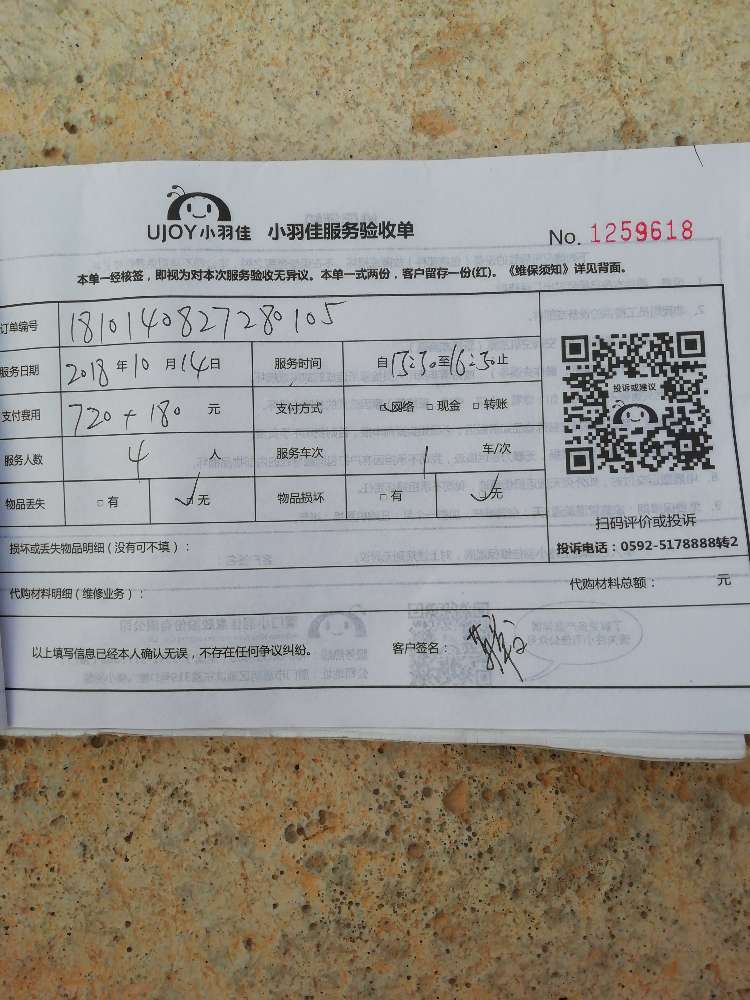 UJOY小羽佳 小羽佳服务验收单 No. 1259618
本单一经核签，即视为对本次服务验收无异议。本单一式两份，客户留存一份(红)。《维保须知》详见背面。
订单编号 1810140827280105
服务日期 2018 年 10 月 14 日 服务时间 自 13:30 至 16:30 止
支付费用 720 + 180 元 支付方式 ☑网络 □现金 □转账
服务人数 4 人 服务车次 1 车/次
物品丢失 □有 ☑无 物品损坏 □有 ☑无
投诉或建议
扫码评价或投诉
投诉电话：0592-5178888转2
损坏或丢失物品明细（没有可不填）：
代购材料明细（维修业务）： 代购材料总额： 元
以上填写信息已经本人确认无误，不存在任何争议纠纷。 客户签名：